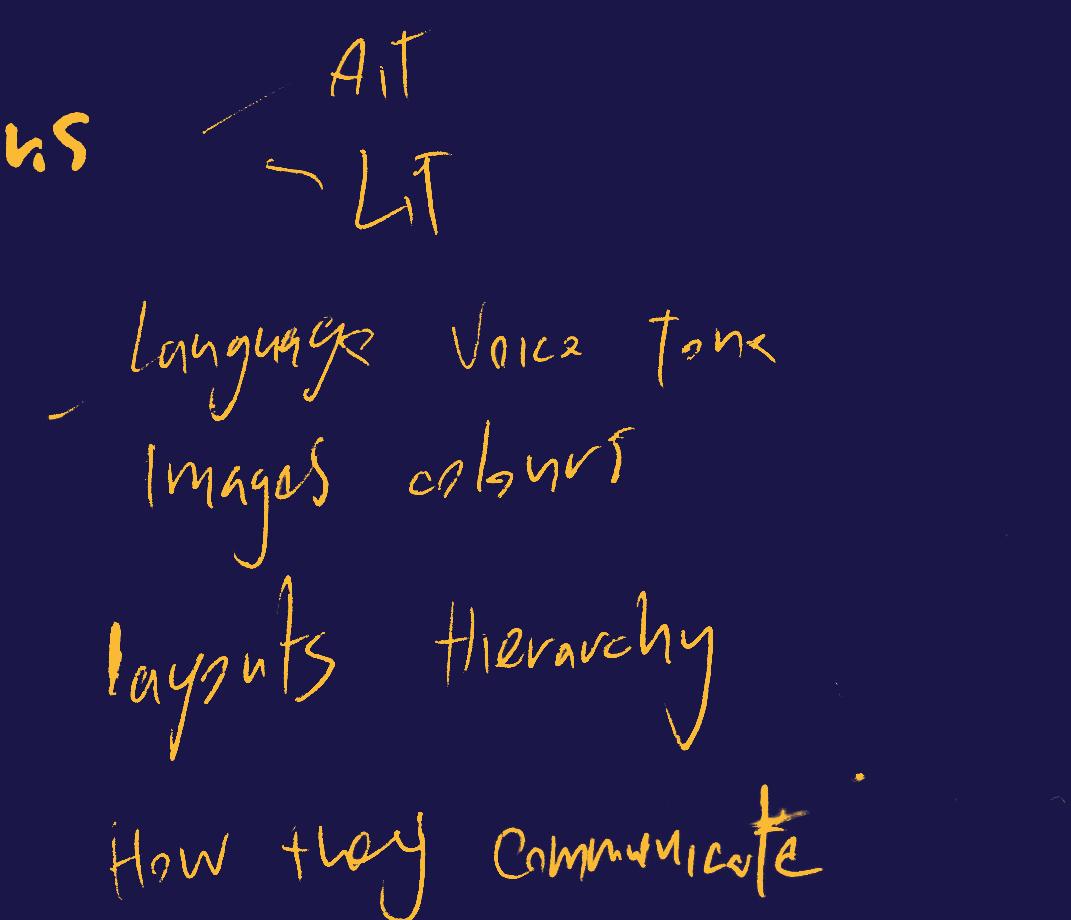 AiT
LiT
Language Voice Tone
Images colours
layouts Hierarchy
How they communicate